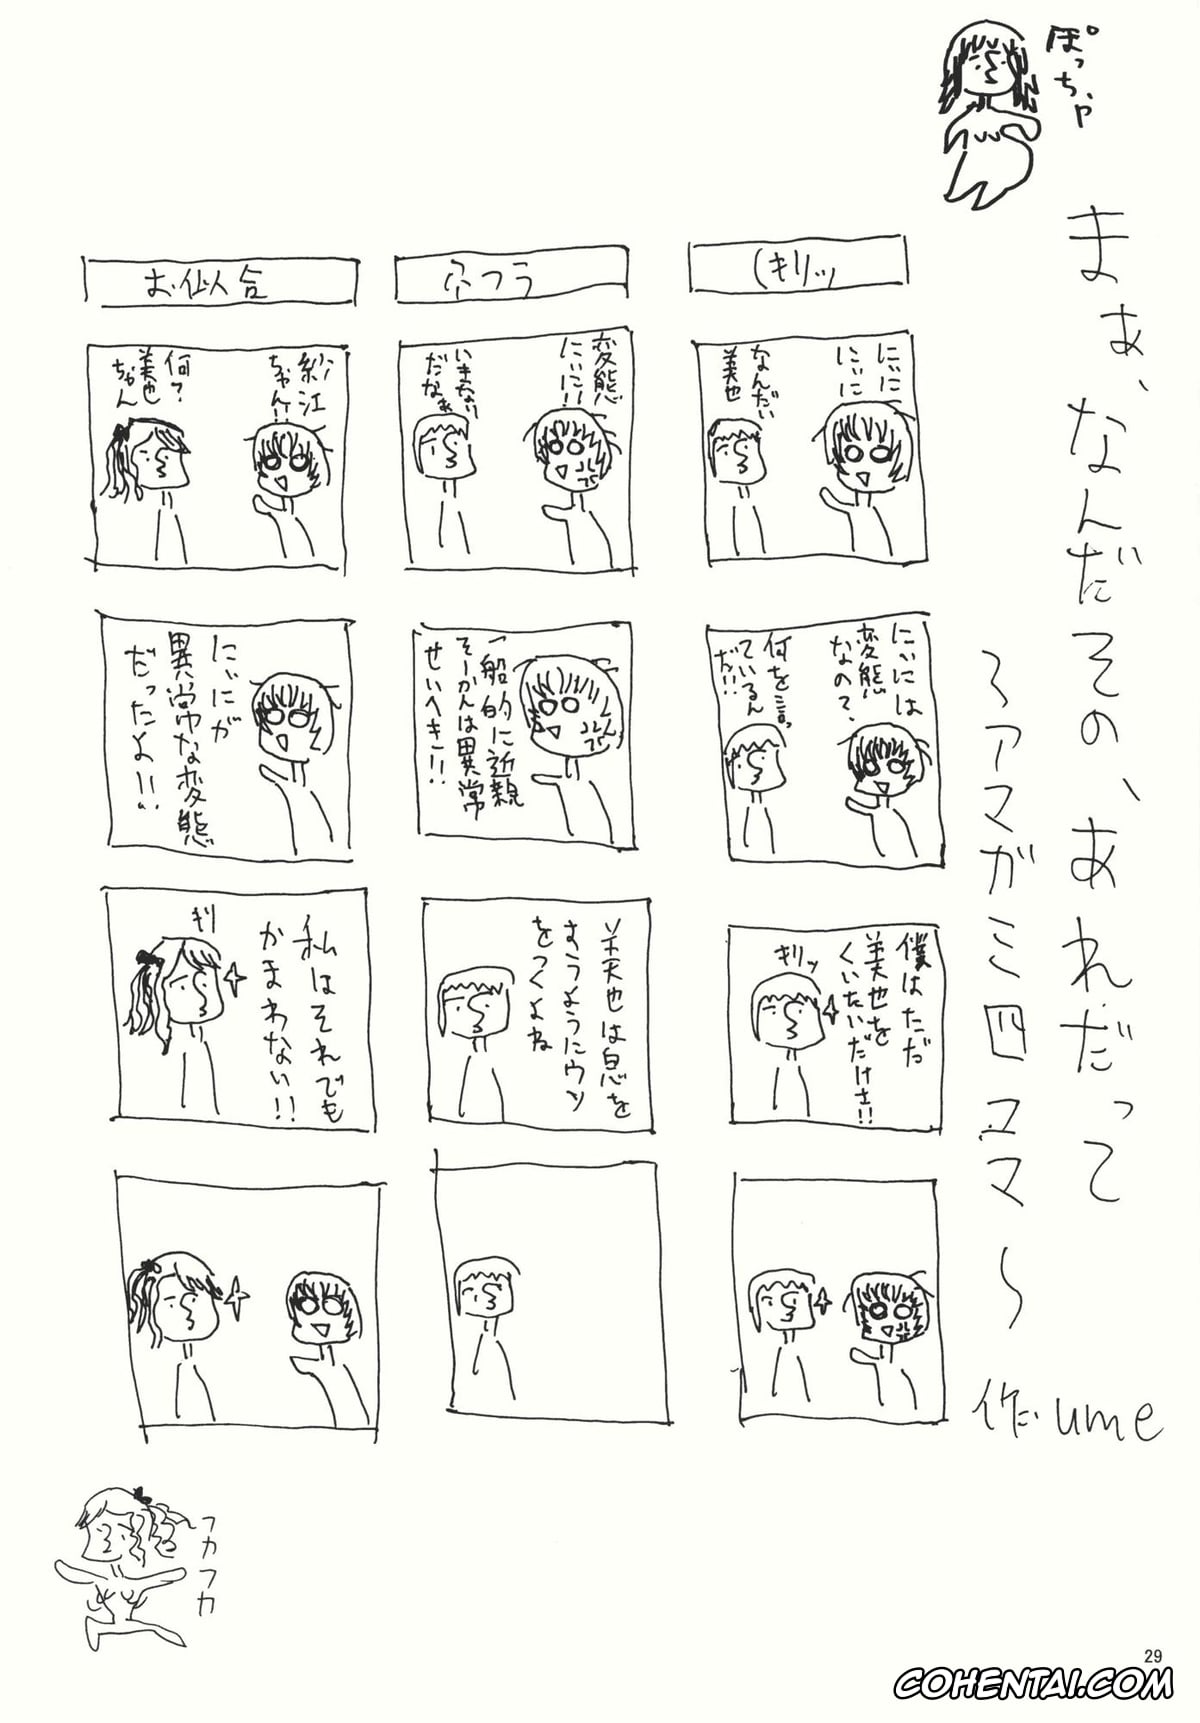 ぽっちゃ
まぁ、なんだその、あれだって
～アマガミ四コマ～
作 ume
(キリッ
にぃに
にぃに
なんだい
美也
にぃには
変態
なの?
何を言っ
ているん
だ!!
僕はただ
美也を
くいたいだけさ!!
キリッ
変態
にぃに!!
いきなり
だなぁ
一般的に近親
そーかんは異常
せいへき!!
美也は息を
すうようにウソ
をつくよね
お似合
紗江
ちゃん!!
何?
美也
ちゃん
にぃにが
異常な変態
だったよ!!
私はそれでも
かまわない!!
キリ
フカフカ
29
COHENTAI.COM